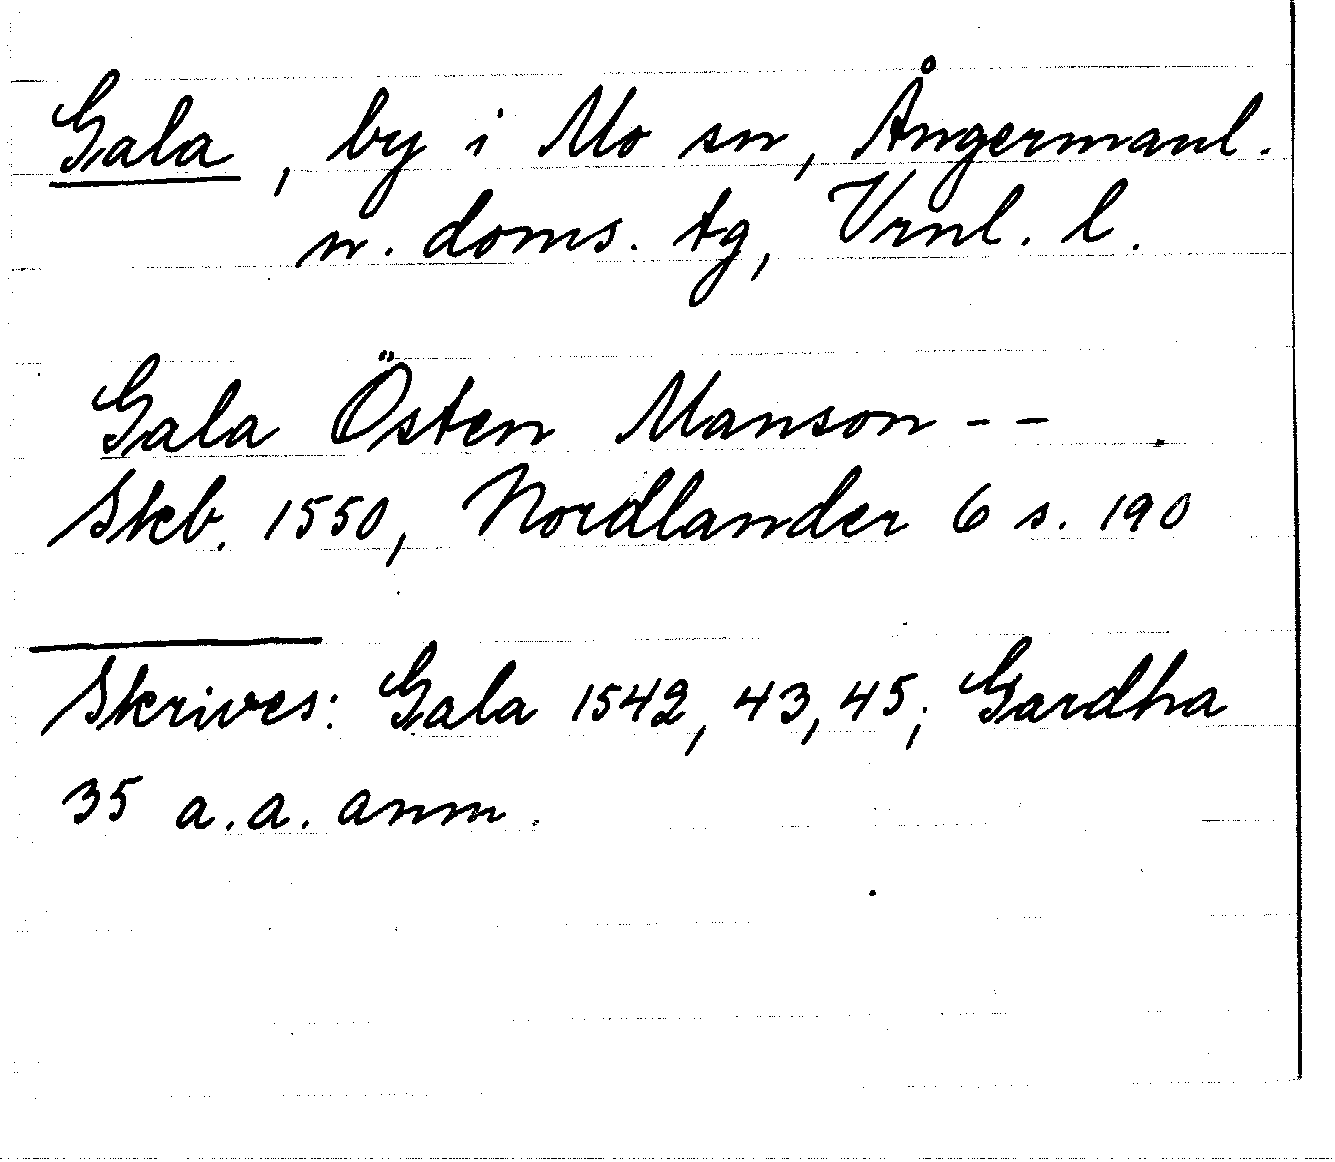 Gala, by i Mo sn, Ångermanl.
n. doms. tg, Vrnl. l.
Gala Östen Manson --
Skb. 1550, Nordlander 6 s. 190
Skrives: Gala 1542, 43, 45; Gardha
35 a.a. anm.